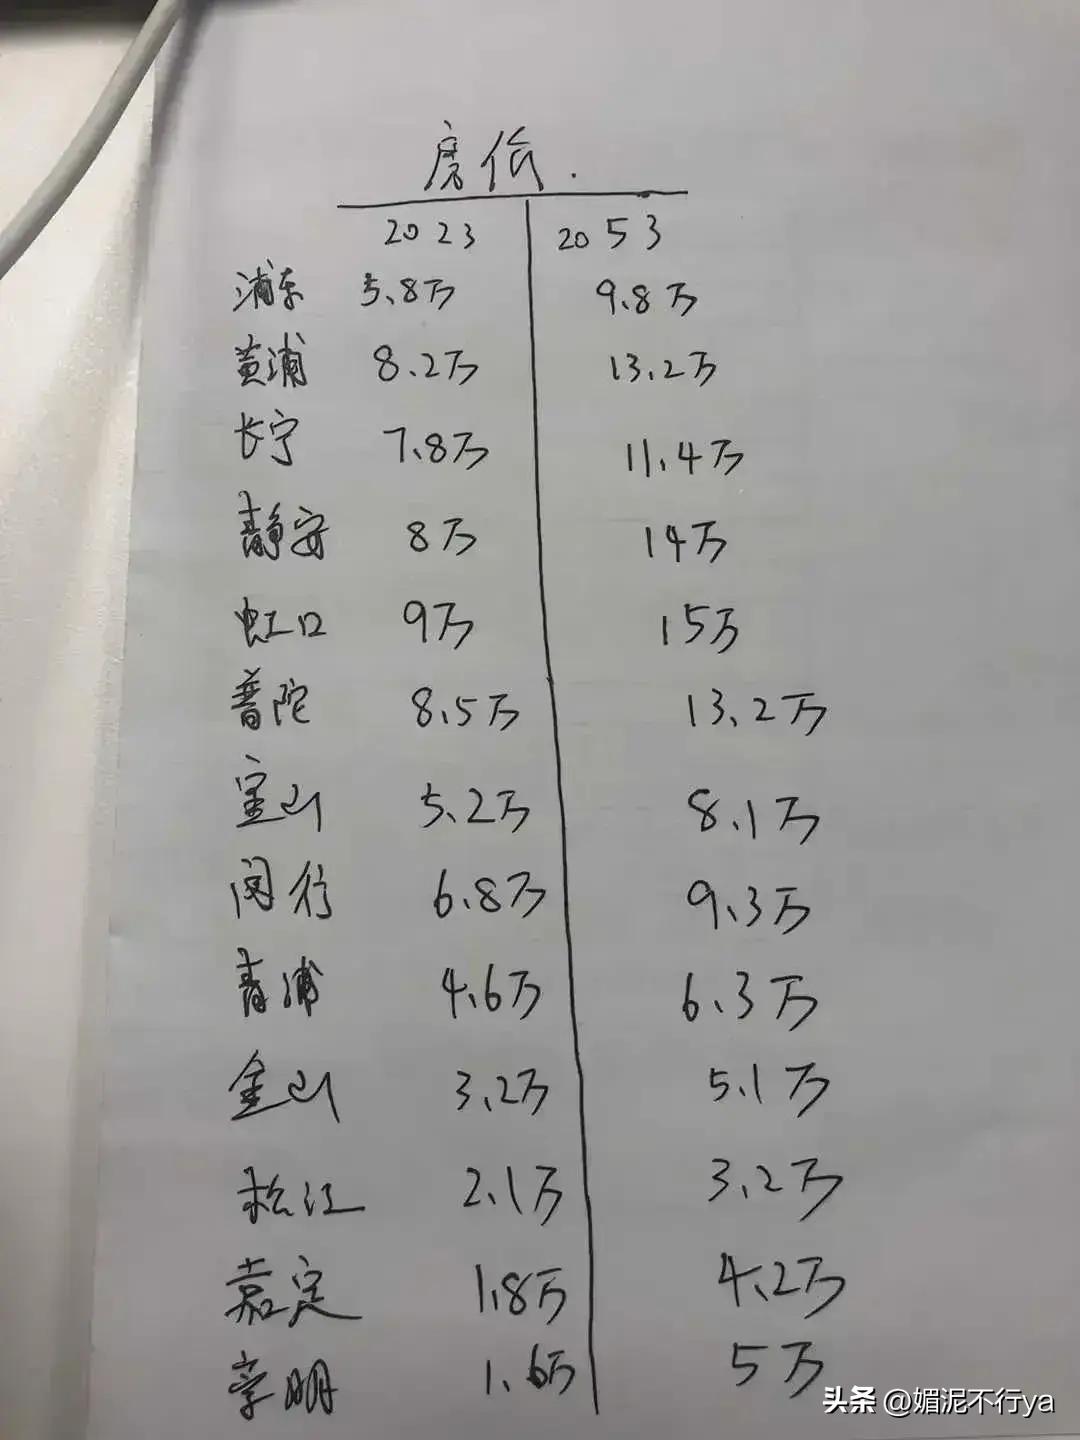 房价.
2023 2053
浦东 5.8万 9.8万
黄浦 8.2万 13.2万
长宁 7.8万 11.4万
静安 8万 14万
虹口 9万 15万
普陀 8.5万 13.2万
宝山 5.2万 8.1万
闵行 6.8万 9.3万
青浦 4.6万 6.3万
金山 3.2万 5.1万
松江 2.1万 3.2万
嘉定 1.8万 4.2万
崇明 1.6万 5万
头条 @媚泥不行ya